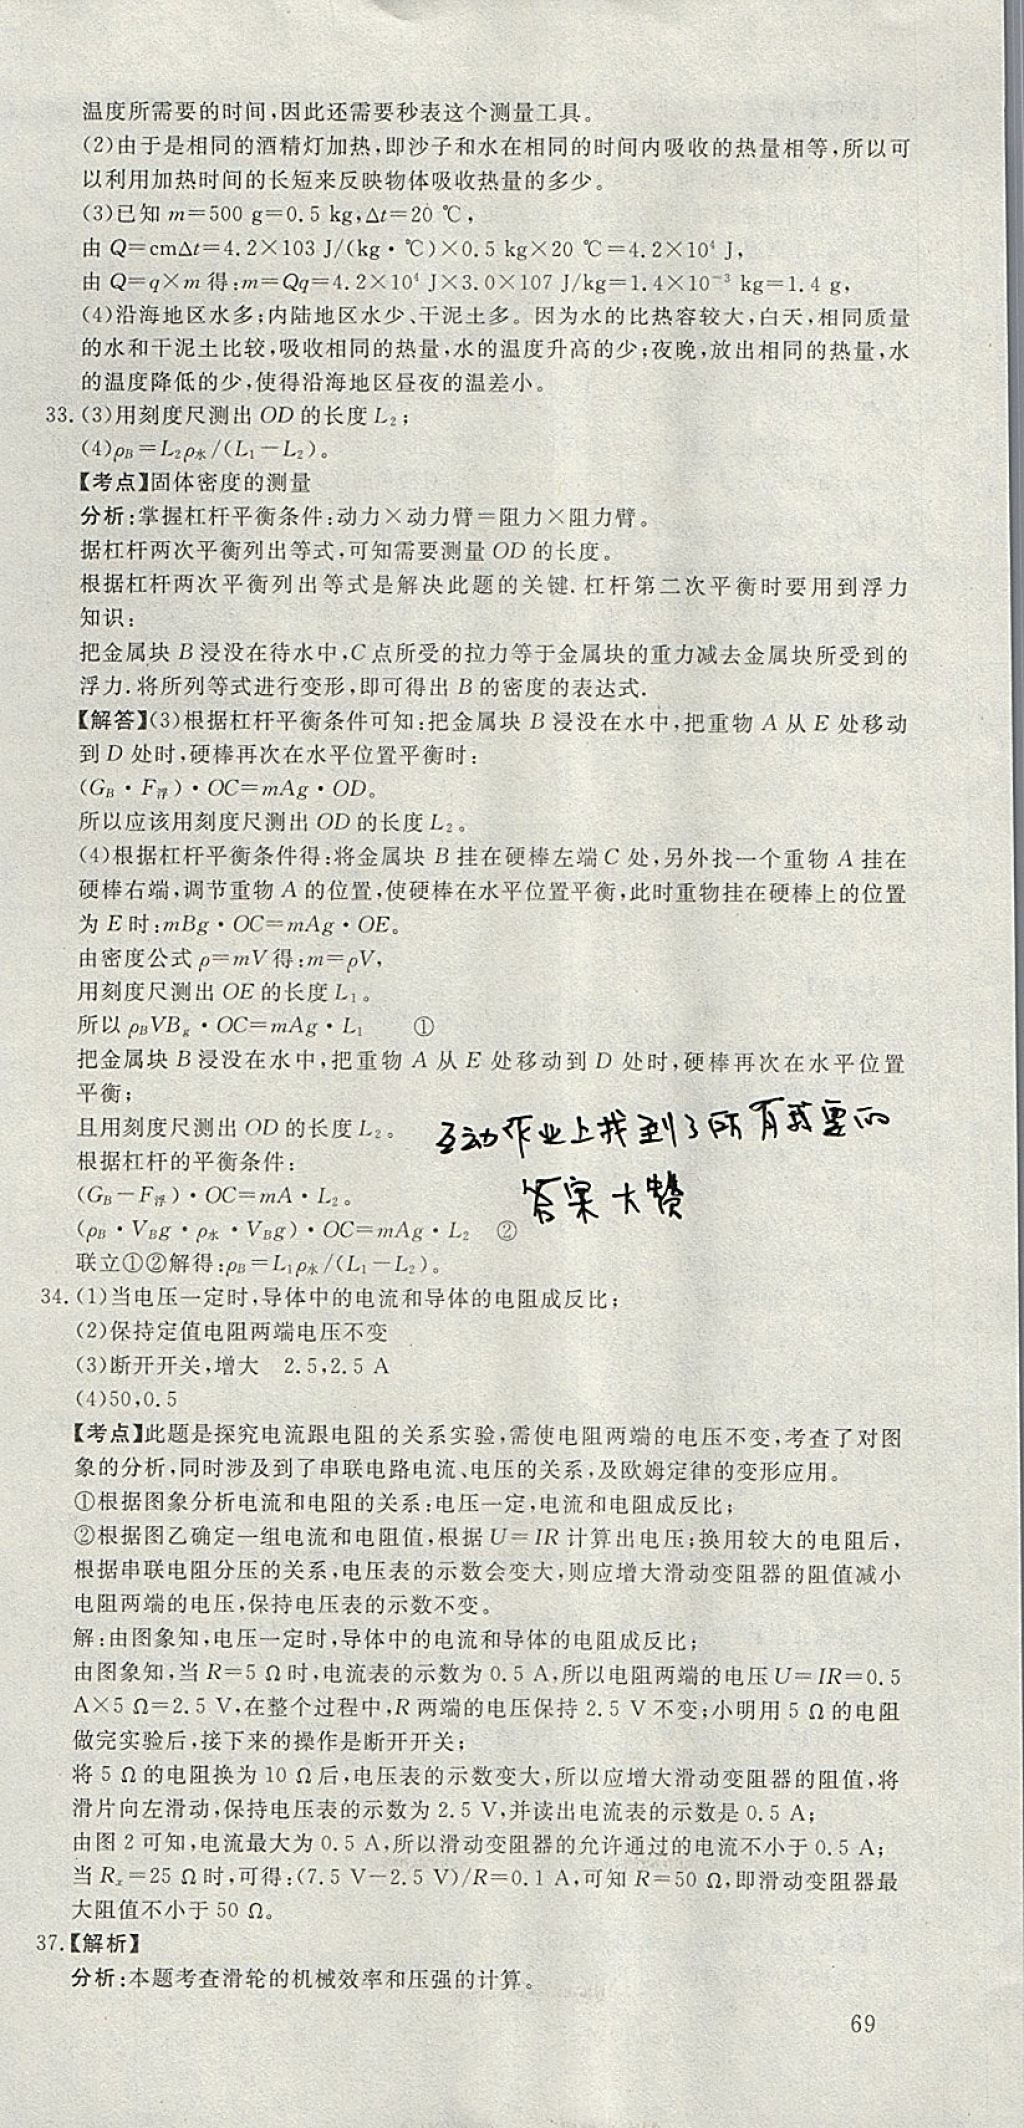 温度所需要的时间,因此还需要秒表这个测量工具。
(2)由于是相同的酒精灯加热,即沙子和水在相同的时间内吸收的热量相等,所以可
以利用加热时间的长短来反映物体吸收热量的多少。
(3)已知 m=500 g=0.5 kg,Δt=20 ℃,
由 Q=cmΔt=4.2×103 J/(kg·℃)×0.5 kg×20 ℃=4.2×10⁴ J,
由 Q=q×m 得:m=Qq=4.2×10⁴ J×3.0×107 J/kg=1.4×10⁻³ kg=1.4 g,
(4)沿海地区水多;内陆地区水少、干泥土多。因为水的比热容较大,白天,相同质量
的水和干泥土比较,吸收相同的热量,水的温度升高的少;夜晚,放出相同的热量,水
的温度降低的少,使得沿海地区昼夜的温差小。
33.(3)用刻度尺测出 OD 的长度 L₂;
(4)ρB=L₂ρ水/(L₁-L₂)。
【考点】固体密度的测量
分析:掌握杠杆平衡条件:动力×动力臂=阻力×阻力臂。
据杠杆两次平衡列出等式,可知需要测量 OD 的长度。
根据杠杆两次平衡列出等式是解决此题的关键.杠杆第二次平衡时要用到浮力
知识:
把金属块 B 浸没在待水中,C 点所受的拉力等于金属块的重力减去金属块所受到的
浮力.将所列等式进行变形,即可得出 B 的密度的表达式.
【解答】(3)根据杠杆平衡条件可知:把金属块 B 浸没在水中,把重物 A 从 E 处移动
到 D 处时,硬棒再次在水平位置平衡时:
(GB·F浮)·OC=mAg·OD。
所以应该用刻度尺测出 OD 的长度 L₂。
(4)根据杠杆平衡条件得:将金属块 B 挂在硬棒左端 C 处,另外找一个重物 A 挂在
硬棒右端,调节重物 A 的位置,使硬棒在水平位置平衡,此时重物挂在硬棒上的位置
为 E 时:mBg·OC=mAg·OE。
由密度公式 ρ=mV 得:m=ρV,
用刻度尺测出 OE 的长度 L₁。
所以 ρBVBg·OC=mAg·L₁ ①
把金属块 B 浸没在水中,把重物 A 从 E 处移动到 D 处时,硬棒再次在水平位置
平衡;
且用刻度尺测出 OD 的长度 L₂。
互动作业上找到了所有我要的
根据杠杆的平衡条件:
(GB-F浮)·OC=mA·L₂。
答案 大赞
(ρB·VBg·ρ水·VBg)·OC=mAg·L₂ ②
联立①②解得:ρB=L₁ρ水/(L₁-L₂)。
34.(1)当电压一定时,导体中的电流和导体的电阻成反比;
(2)保持定值电阻两端电压不变
(3)断开开关,增大 2.5,2.5 A
(4)50,0.5
【考点】此题是探究电流跟电阻的关系实验,需使电阻两端的电压不变,考查了对图
象的分析,同时涉及到了串联电路电流、电压的关系,及欧姆定律的变形应用。
①根据图象分析电流和电阻的关系:电压一定,电流和电阻成反比;
②根据图乙确定一组电流和电阻值,根据 U=IR 计算出电压;换用较大的电阻后,
根据串联电阻分压的关系,电压表的示数会变大,则应增大滑动变阻器的阻值减小
电阻两端的电压,保持电压表的示数不变。
解:由图象知,电压一定时,导体中的电流和导体的电阻成反比;
由图象知,当 R=5 Ω 时,电流表的示数为 0.5 A,所以电阻两端的电压 U=IR=0.5
A×5 Ω=2.5 V,在整个过程中,R 两端的电压保持 2.5 V 不变;小明用 5 Ω 的电阻
做完实验后,接下来的操作是断开开关;
将 5 Ω 的电阻换为 10 Ω 后,电压表的示数变大,所以应增大滑动变阻器的阻值,将
滑片向左滑动,保持电压表的示数为 2.5 V,并读出电流表的示数是 0.5 A;
由图 2 可知,电流最大为 0.5 A,所以滑动变阻器的允许通过的电流不小于 0.5 A;
当 Rₓ=25 Ω 时,可得:(7.5 V-2.5 V)/R=0.1 A,可知 R=50 Ω,即滑动变阻器最
大阻值不小于 50 Ω。
37.【解析】
分析:本题考查滑轮的机械效率和压强的计算。
69